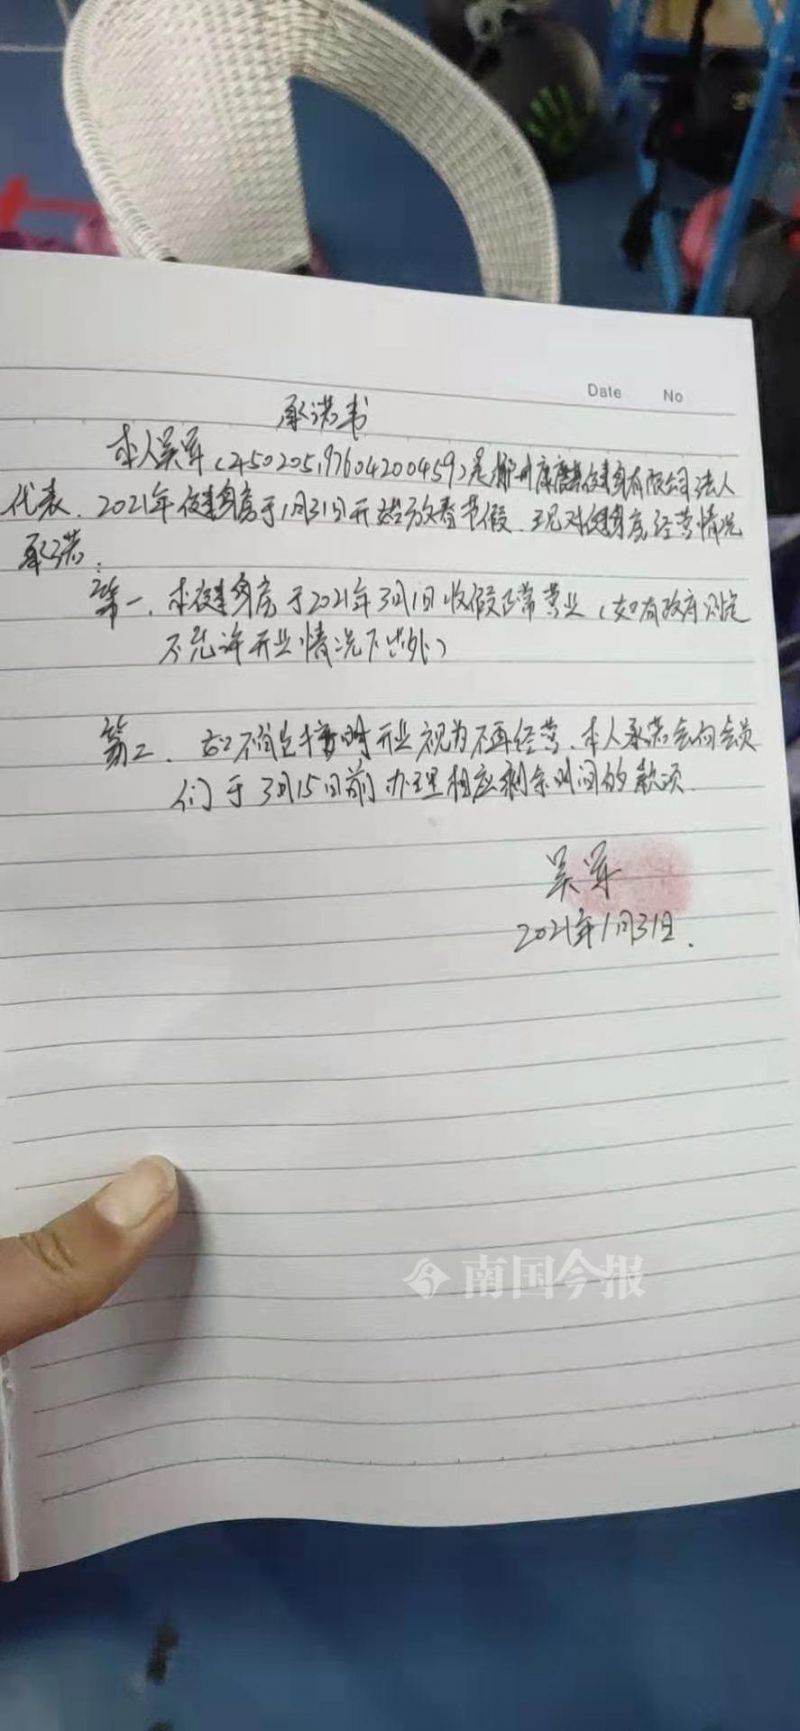 Date No
承诺书
本人吴军(450205197604200459)是柳州康唐健身有限公司法人
代表.2021年健身房于1月31日开始放春节假.现对健身房经营情况
承诺:
第一、本健身房于2021年3月1日收假正常营业(如有政府规定
不允许开业情况下出外)
第二、如不能按时开业视为不再经营.本人承诺会向会员
们于3月15日前办理相应剩余时间的款项.
吴军
2021年1月31日.
南国今报